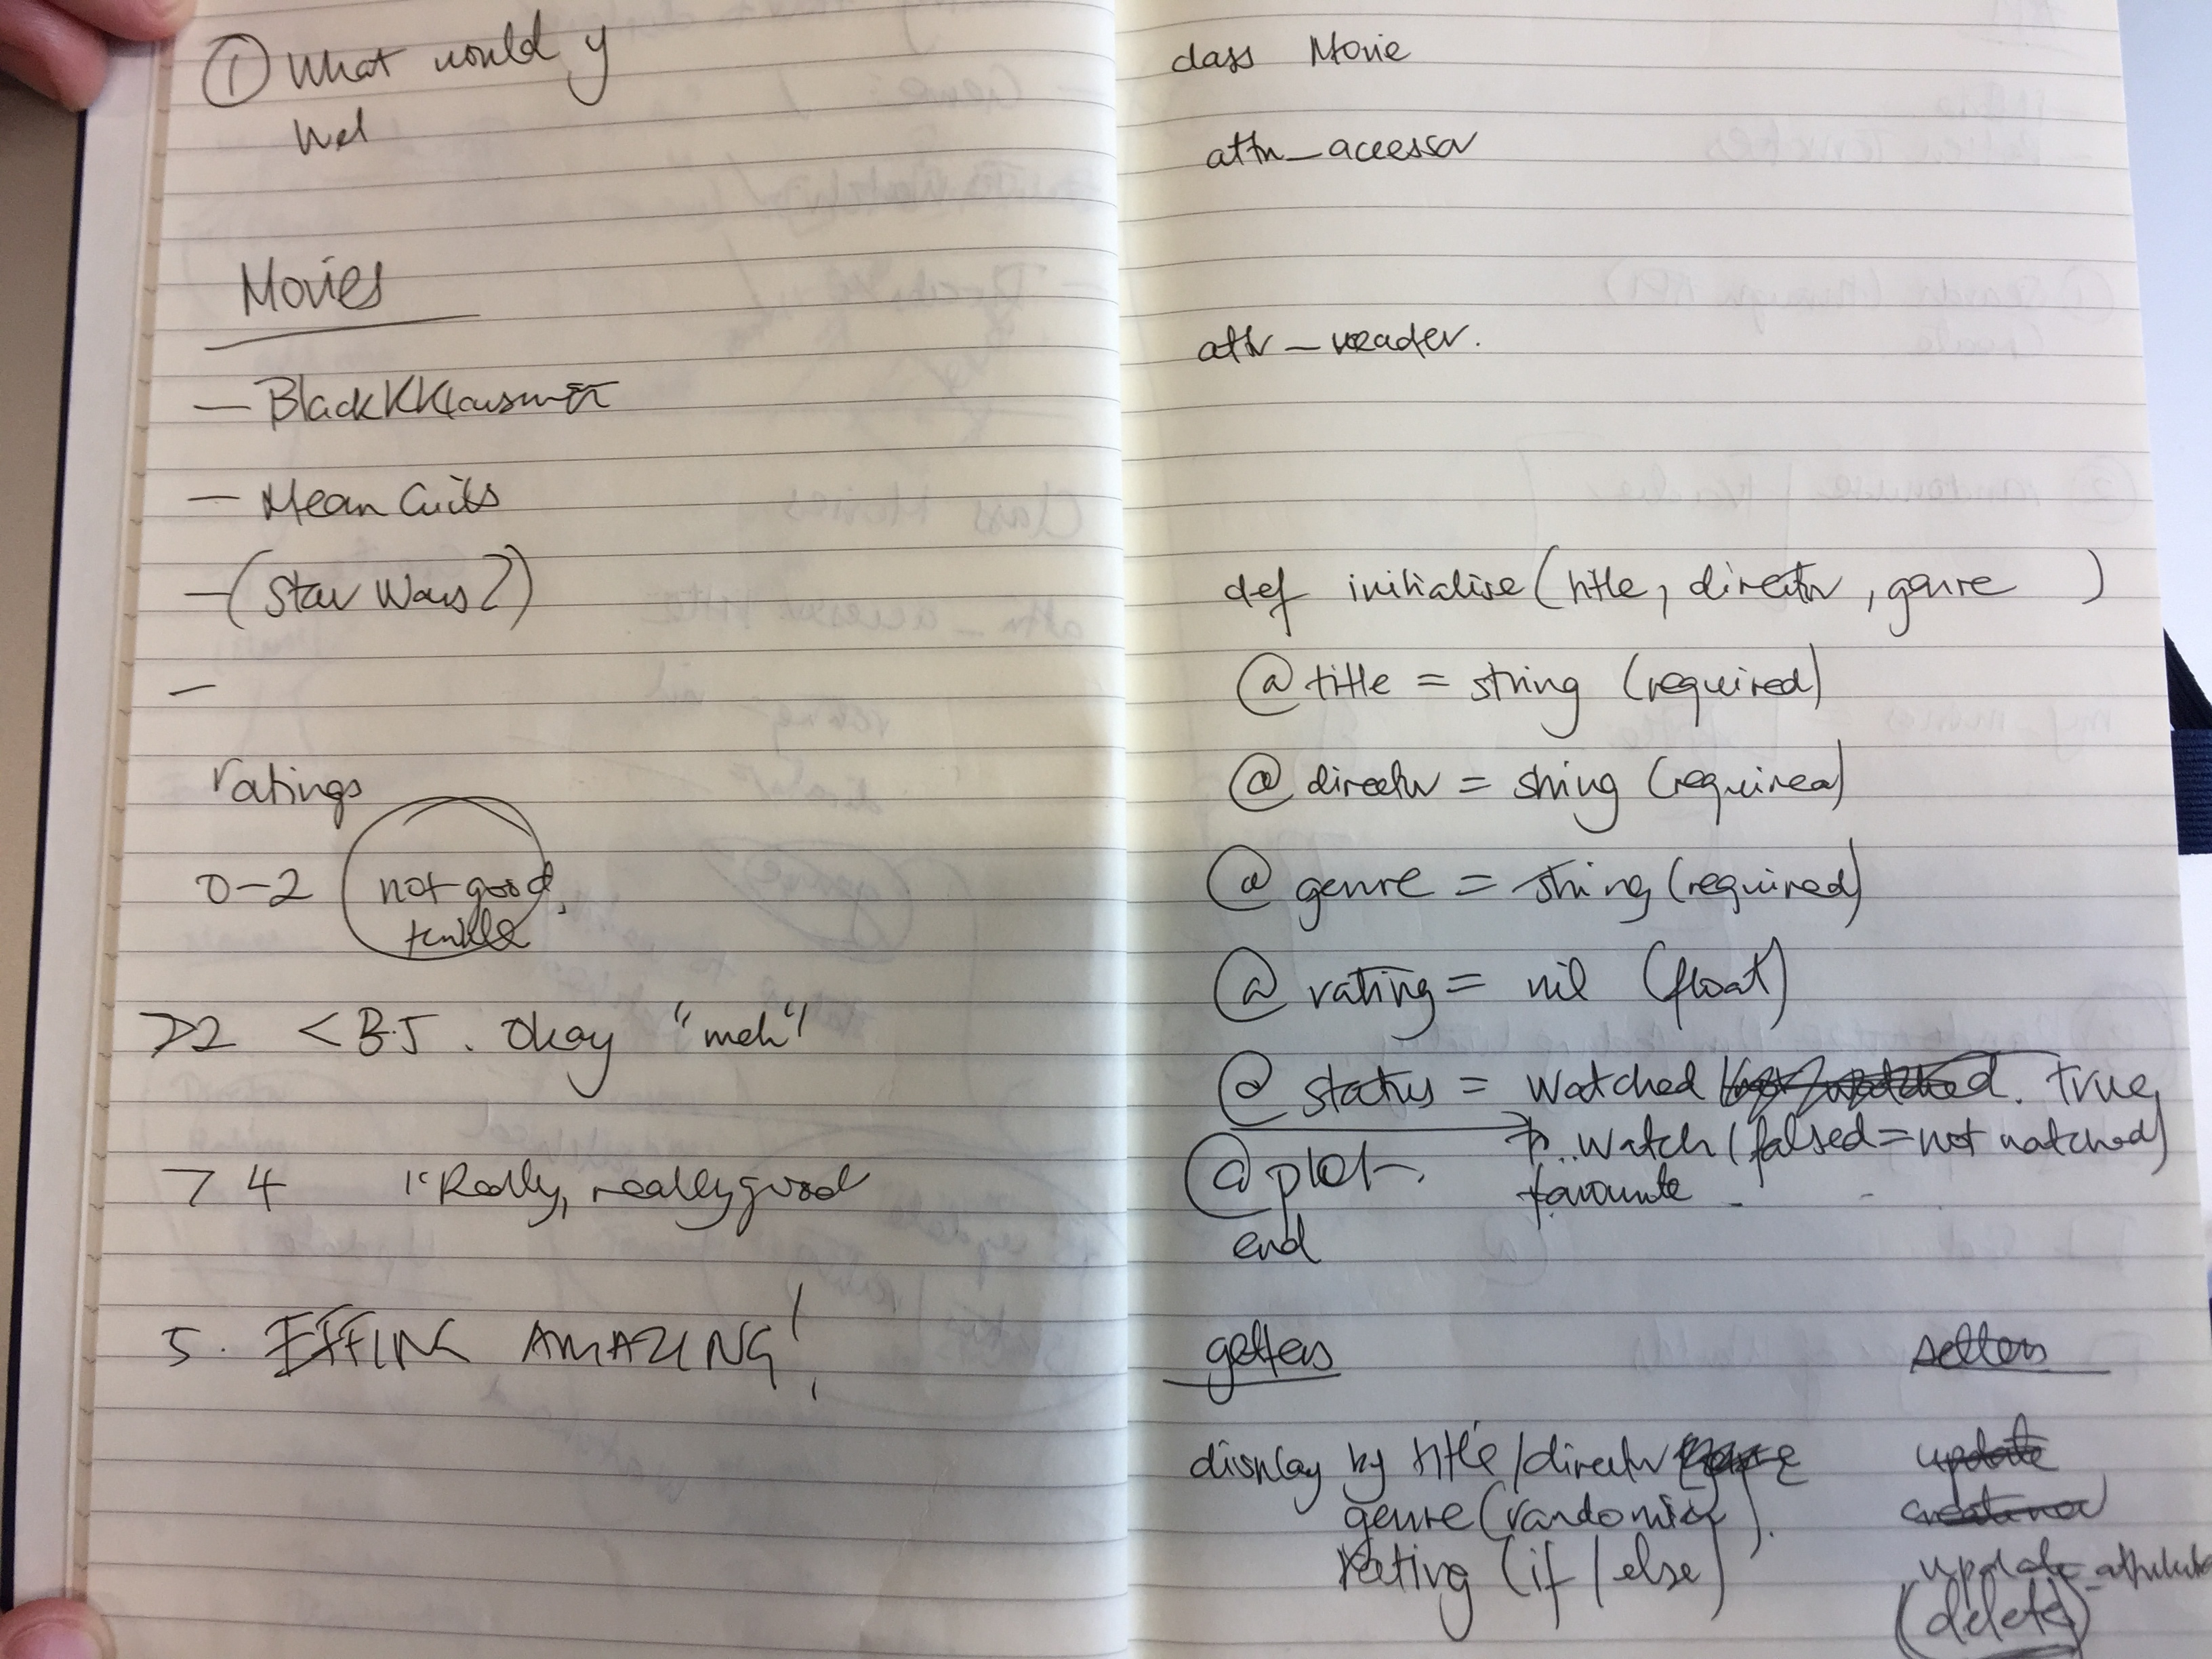 ① What would y
Wel
Movies
— BlackKKlansman
— Mean Girls
— (Star Wars?)
—
ratings
0-2 not good,
terrible
>2 < 3.5. Okay "meh"
> 4 "Really, really good
5. EFFING AMAZING!
class Movie
attr_accessor
attr_reader.
def initialise (title, director, genre )
@title = string (required)
@director = string (required)
@genre = string (required)
@rating = nil (float)
@status = watched true
to watch (falsed = not watched)
@plot
favourite
end
getters setters
display by title / director update
genre (randomize).
rating (if / else)
update_attribute
(delete)